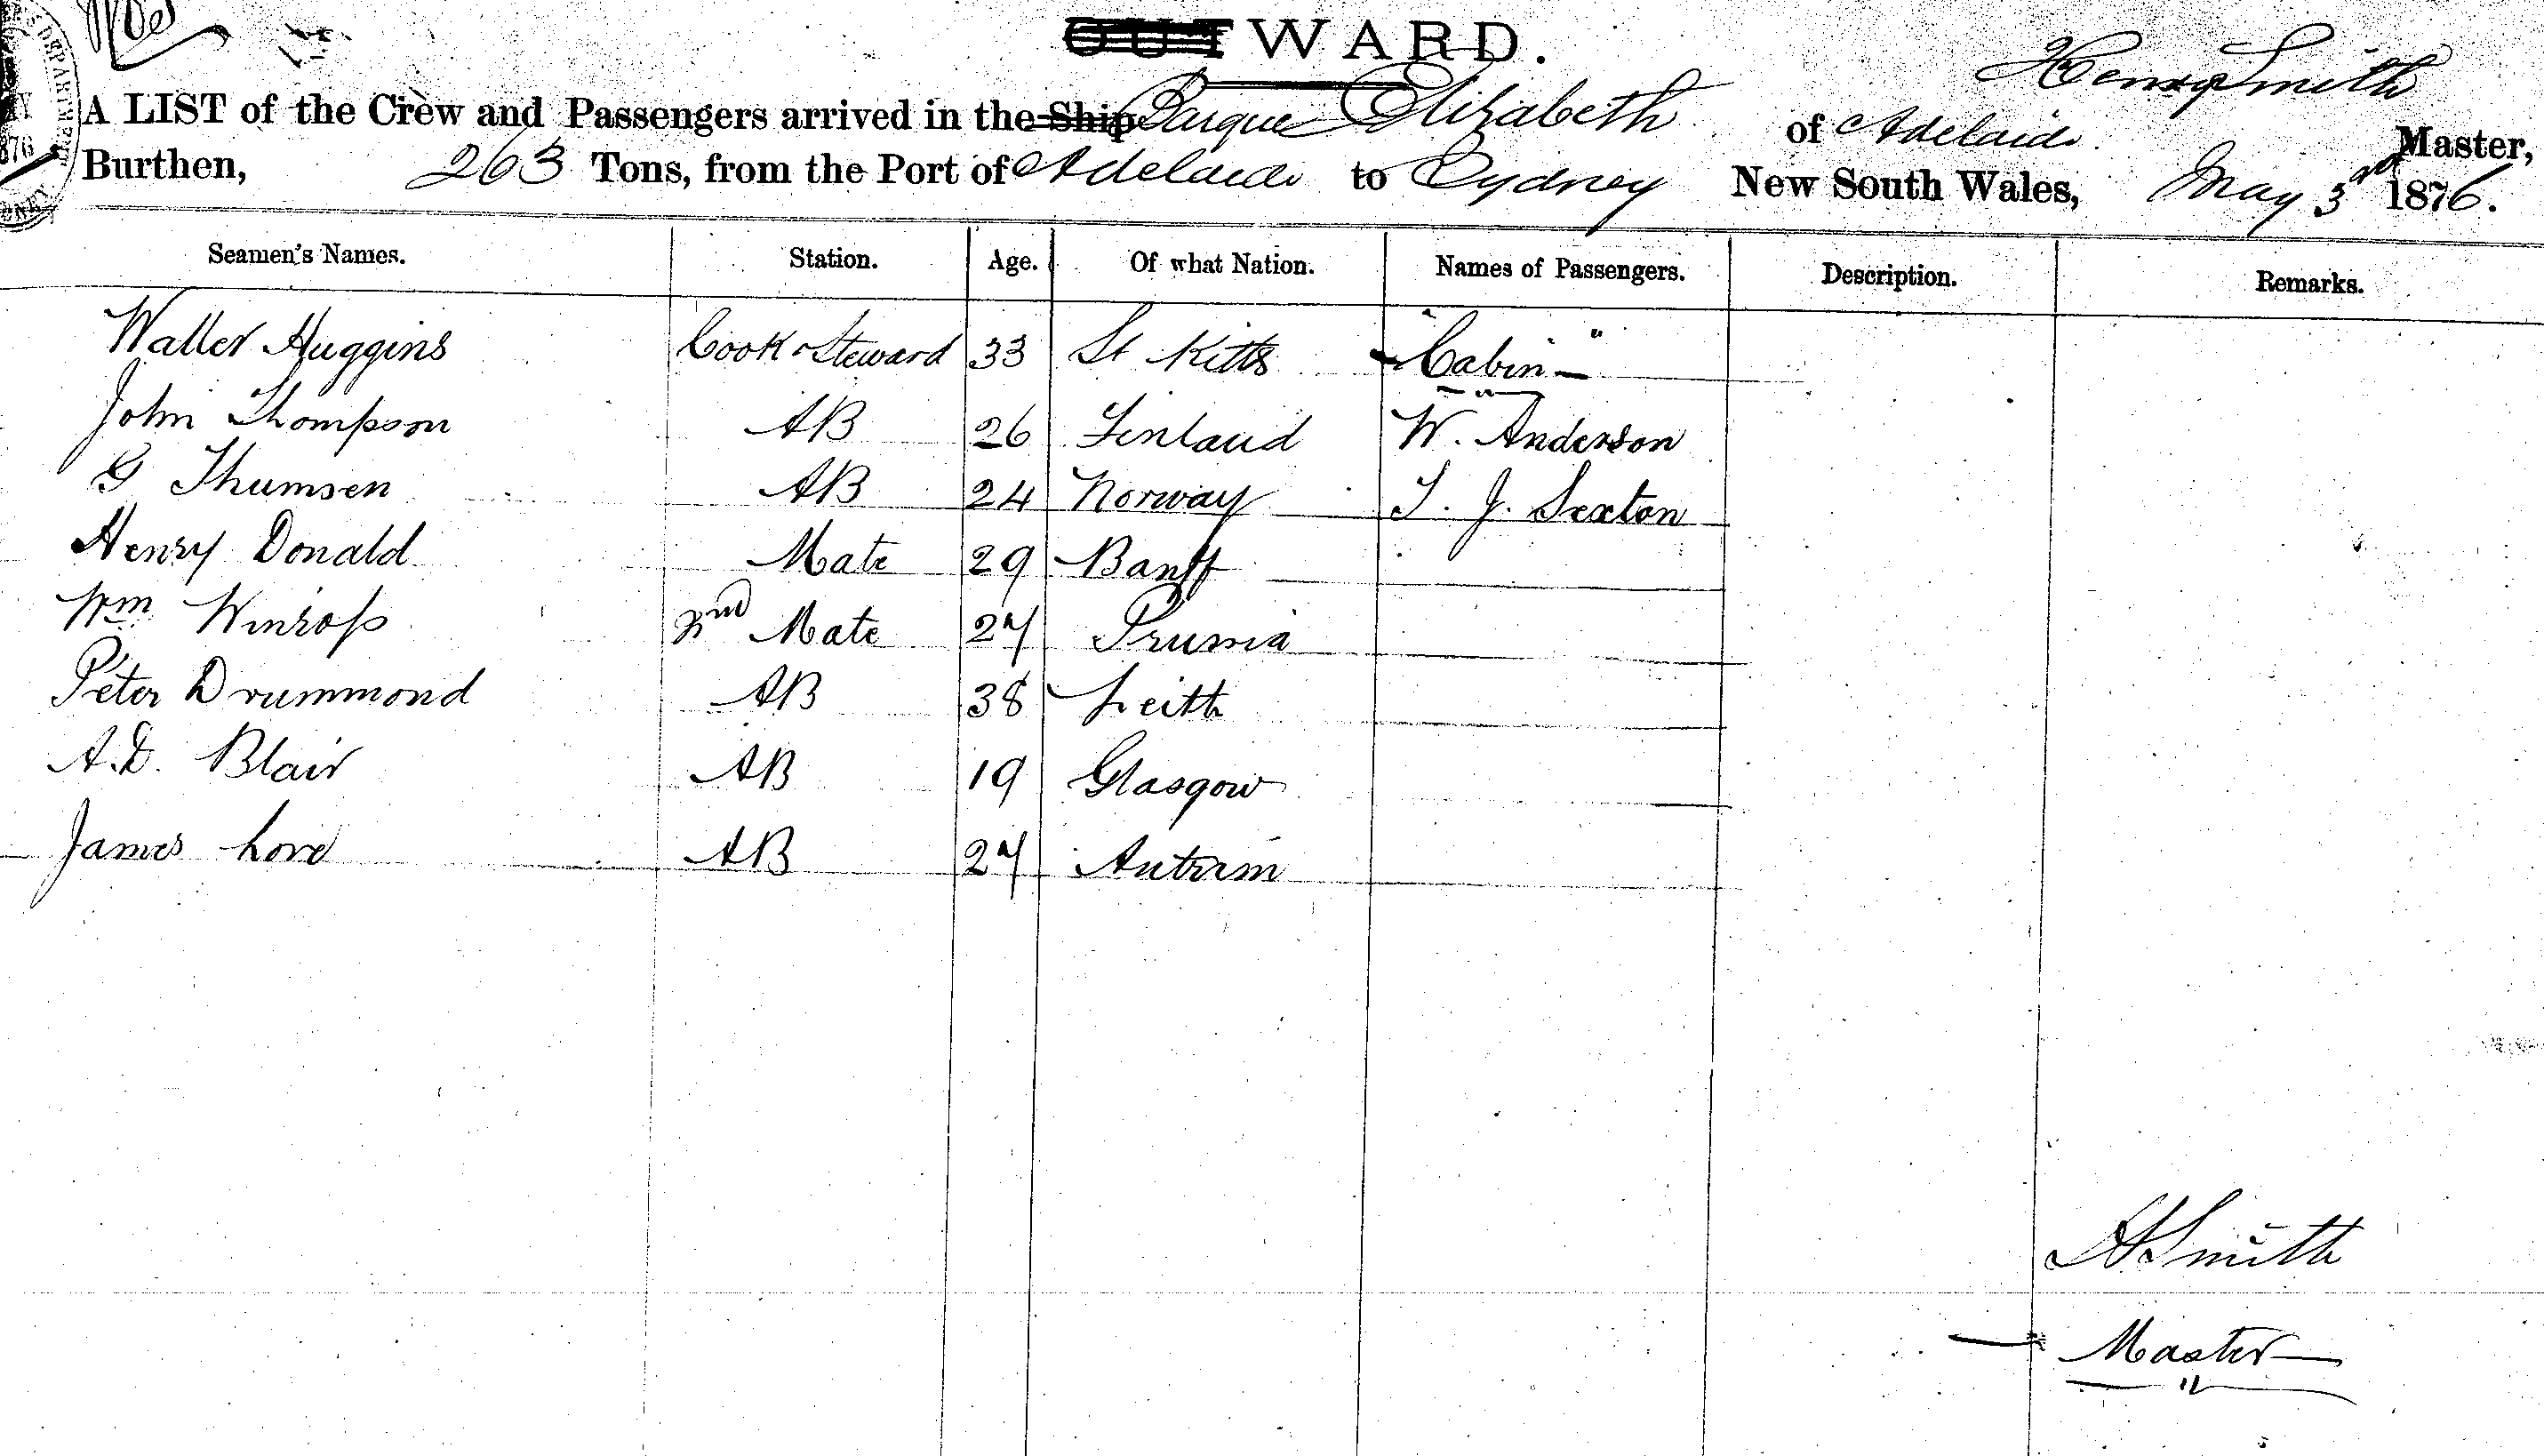 OUTWARD.
Henry Smith
A LIST of the Crew and Passengers arrived in the Ship Barque Elizabeth of Adelaide Master,
Burthen, 263 Tons, from the Port of Adelaide to Sydney New South Wales, May 3rd 1876.
Seamen's Names. Station. Age. Of what Nation. Names of Passengers. Description. Remarks.
Walter Huggins Cook & Steward 33 St Kitts "Cabin"
John Thompson AB 26 Finland W. Anderson
G Thumsen AB 24 Norway T. J. Sexton
Henry Donald Mate 29 Banff
Wm Winrop 2nd Mate 27 Prussia
Peter Drummond AB 38 Leith
A.D. Blair AB 19 Glasgow
James Love AB 27 Antrim
H Smith
Master